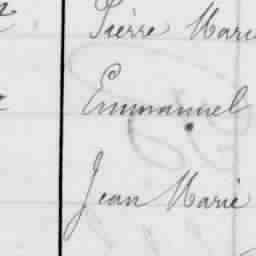 Pierre Marie
Emmanuel
Jean Marie